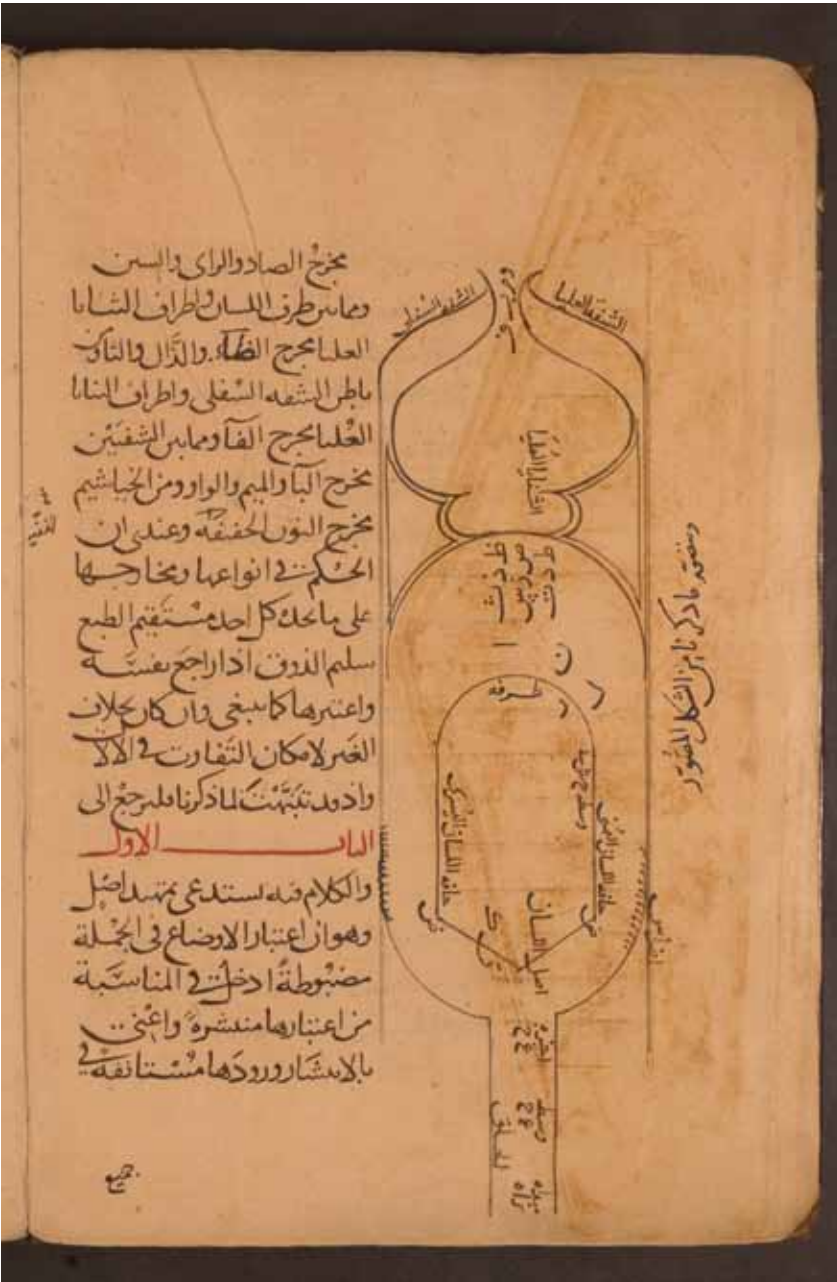 مخرج الصاد والزاى والسين
ومابين طرف اللسان واطراف الثنايا
العليا مخرج الظاء والذال والثاومن
باطن الشفه السفلى واطراف الثنايا
العُليا مخرج الفآ ومابين الشفتين
مخرج البا والميم والواو ومن الخياشيم
مخرج النون الخفيفه وعندى ان
الحكم فى انواعها ومخارجها
على مايجد كل احد مستقيم الطبع
سليم الذوق اذا راجع نفسه
واعتبرها كما ينبغى وان كان بخلاف
الغير لامكان التفاوت فى الآلات
واذ قد تنبّهت لما ذكرنا فلنرجع الى
الباب الاول
والكلام فيه يستدعى تمهيد اصل
وهو ان اعتبار الاوضاع فى الجملة
مضبوطةً ادخل فى المناسبة
من اعتبارها منتشرةً واعنى
بالانتشار ورودها مستانفة فى
الشفة العليا
الشفه السفلى
الثنايا العليا
ط د ت
ص ز س
ظ ذ ث
ن
ر
طرفه
حافه اللسان اليمنى
حافه اللسان اليسرى
ض
ض
اصل اللسان
ق ك
اضراس
اخره
غ خ
وسطه
ع ح
الحلق
ما ذكرنا من الشكل المصور